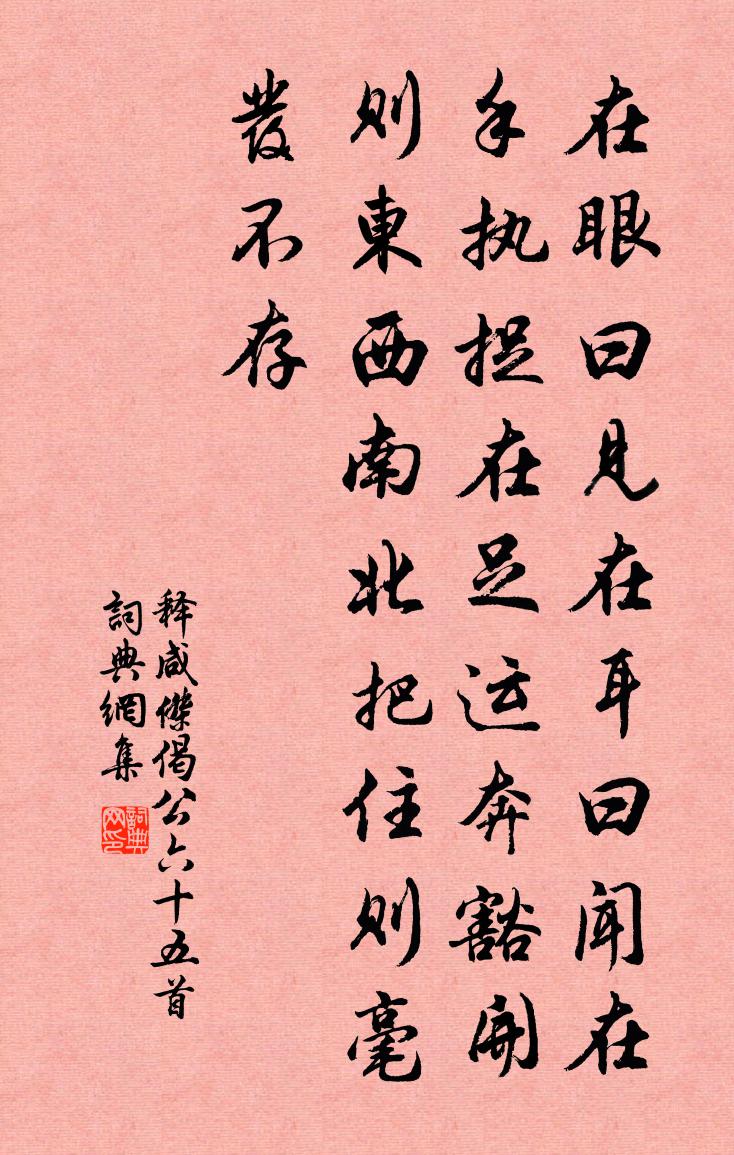 在眼曰見在耳曰闻在
手执捉在足运奔豁開
则東西南北把住则毫
發不存
释咸傑偈公六十五首
詞典網集
詞典网印